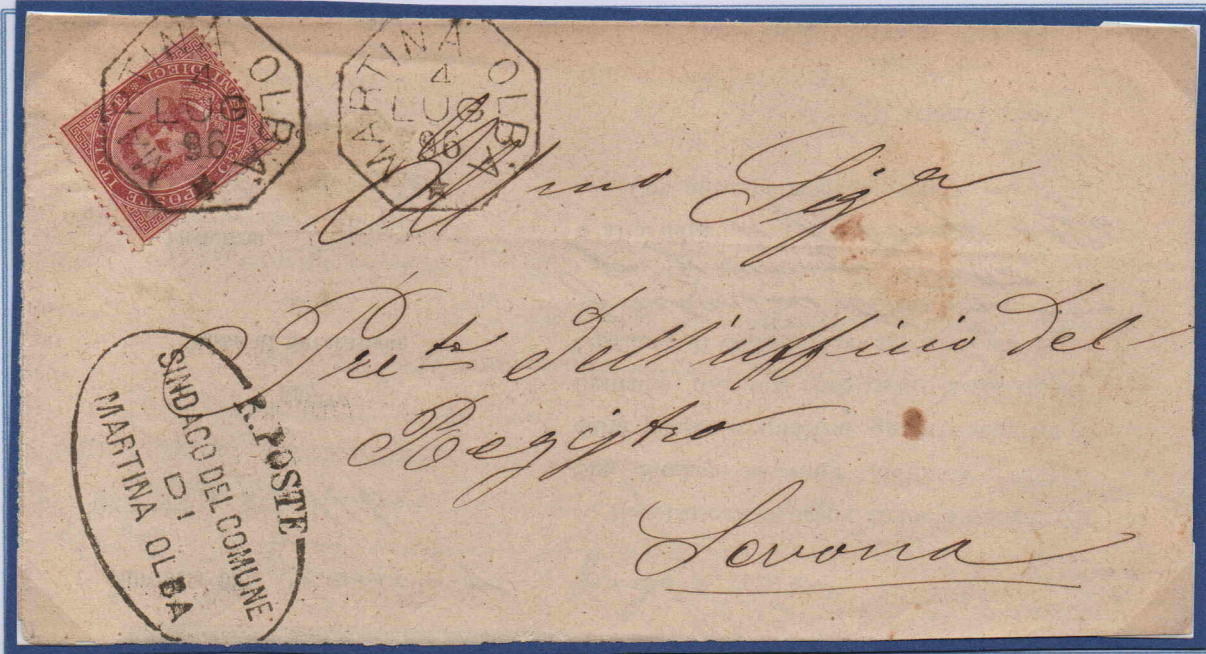 MARTINA OLBA
4
LUG
96
MARTINA OLBA
4
LUG
96
POSTE ITAL
DIECI
Ill mo Sigr
Pretr dell'ufficio del
Registro
Savona
R. POSTE
SINDACO DEL COMUNE
DI
MARTINA OLBA